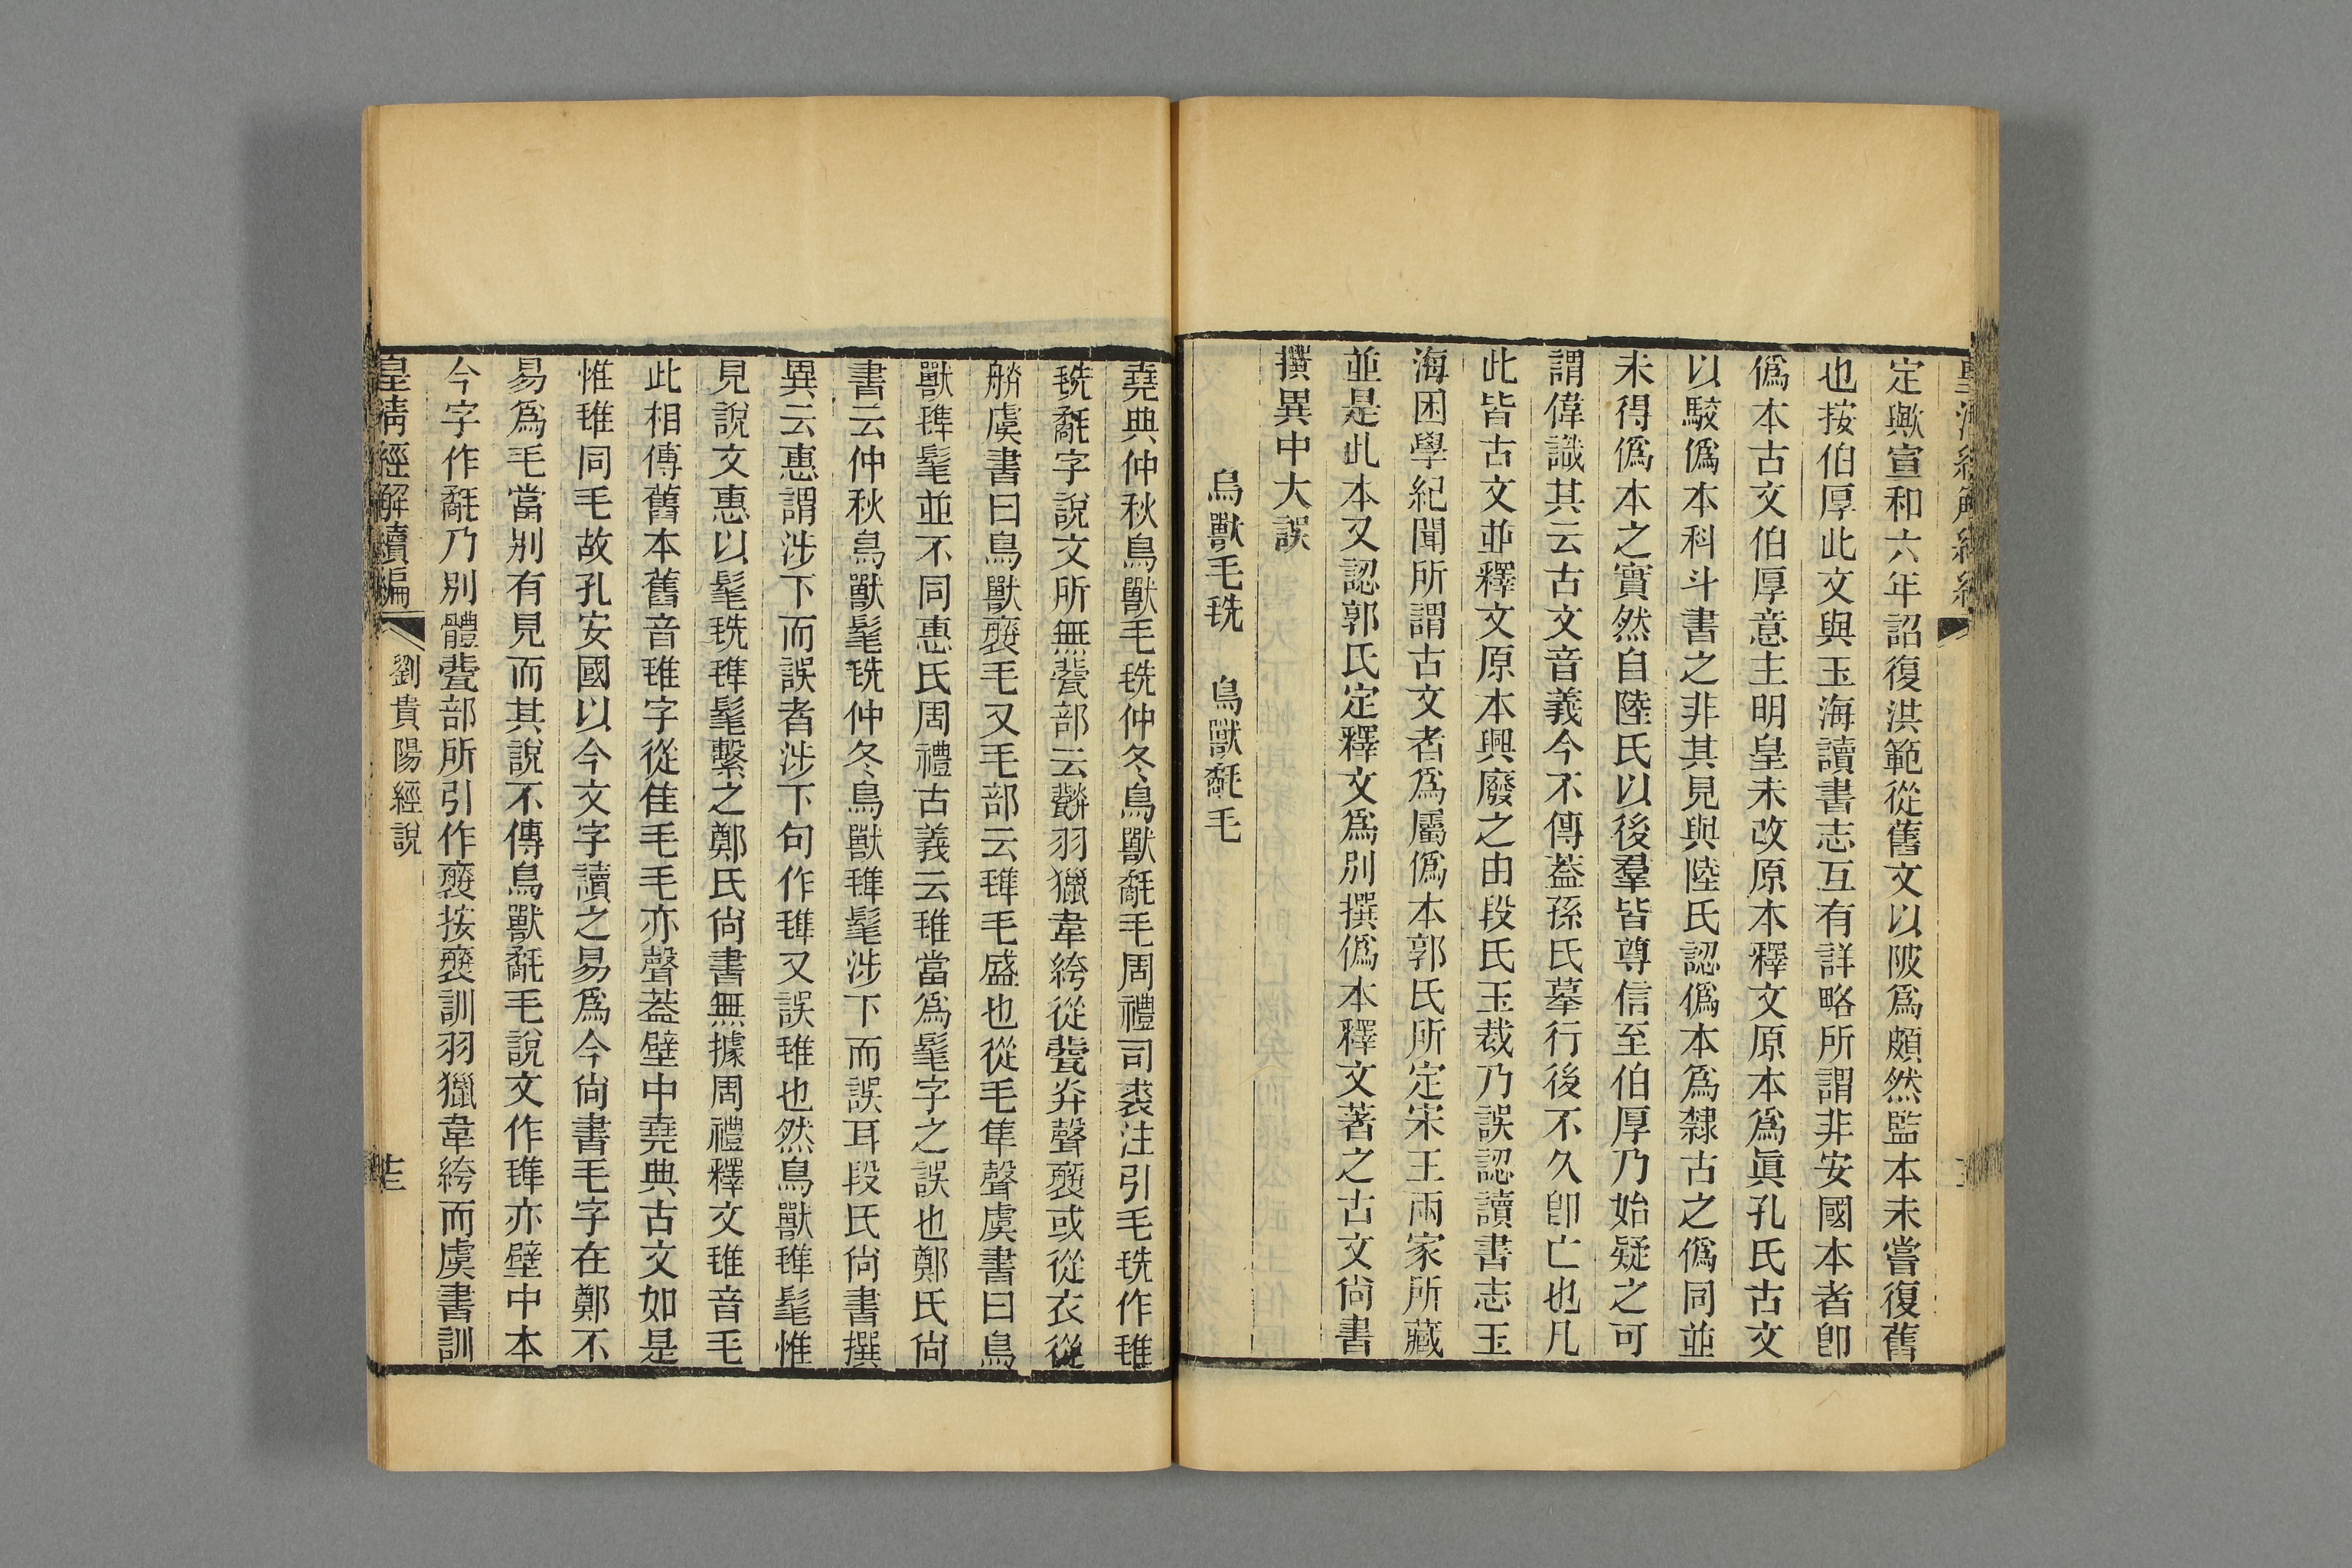 定歟宣和六年詔復洪範從舊文以陂爲頗然監本未嘗復舊
也按伯厚此文與玉海讀書志互有詳略所謂非安國本者卽
僞本古文伯厚意主明皇未改原本釋文原本爲眞孔氏古文
以駮僞本科斗書之非其見與陸氏認僞本爲隸古之僞同並
未得僞本之實然自陸氏以後羣皆尊信至伯厚乃始疑之可
謂偉識其云古文音義今不傳葢孫氏摹行後不久卽亡也凡
此皆古文並釋文原本興廢之由段氏玉裁乃誤認讀書志玉
海困學紀聞所謂古文者爲屬僞本郭氏所定宋王兩家所藏
並是此本又認郭氏定釋文爲別撰僞本釋文著之古文尙書
撰異中大誤
鳥獸毛毨　鳥獸氄毛
堯典仲秋鳥獸毛毨仲冬鳥獸氄毛周禮司裘注引毛毨作䧹
毨氄字說文所無㼱部云𤿧羽獵韋絝從㼱灷聲𧛔或從衣從
𦨶虞書曰鳥獸𧛔毛又毛部云𣰽毛盛也從毛隼聲虞書曰鳥
獸𣰽髦並不同惠氏周禮古義云𣬛當爲髦字之誤也鄭氏尙
書云仲秋鳥獸髦毨仲冬鳥獸𣰽髦涉下而誤耳段氏尙書撰
異云惠謂涉下而誤者涉下句作𣰽又誤𣬛也然鳥獸𣰽髦惟
見說文惠以髦毨𣰽髦繫之鄭氏尙書無據周禮釋文𣬛音毛
此相傳舊本舊音𣬛字從隹毛毛亦聲葢壁中堯典古文如是
惟𣬛同毛故孔安國以今文字讀之易爲今尙書毛字在鄭不
易爲毛當別有見而其說不傳鳥獸氄毛說文作𣰽亦壁中本
今字作氄乃別體㼱部所引作𧛔按𧛔訓羽獵韋絝而虞書訓
皇淸經解續編
劉貴陽經說